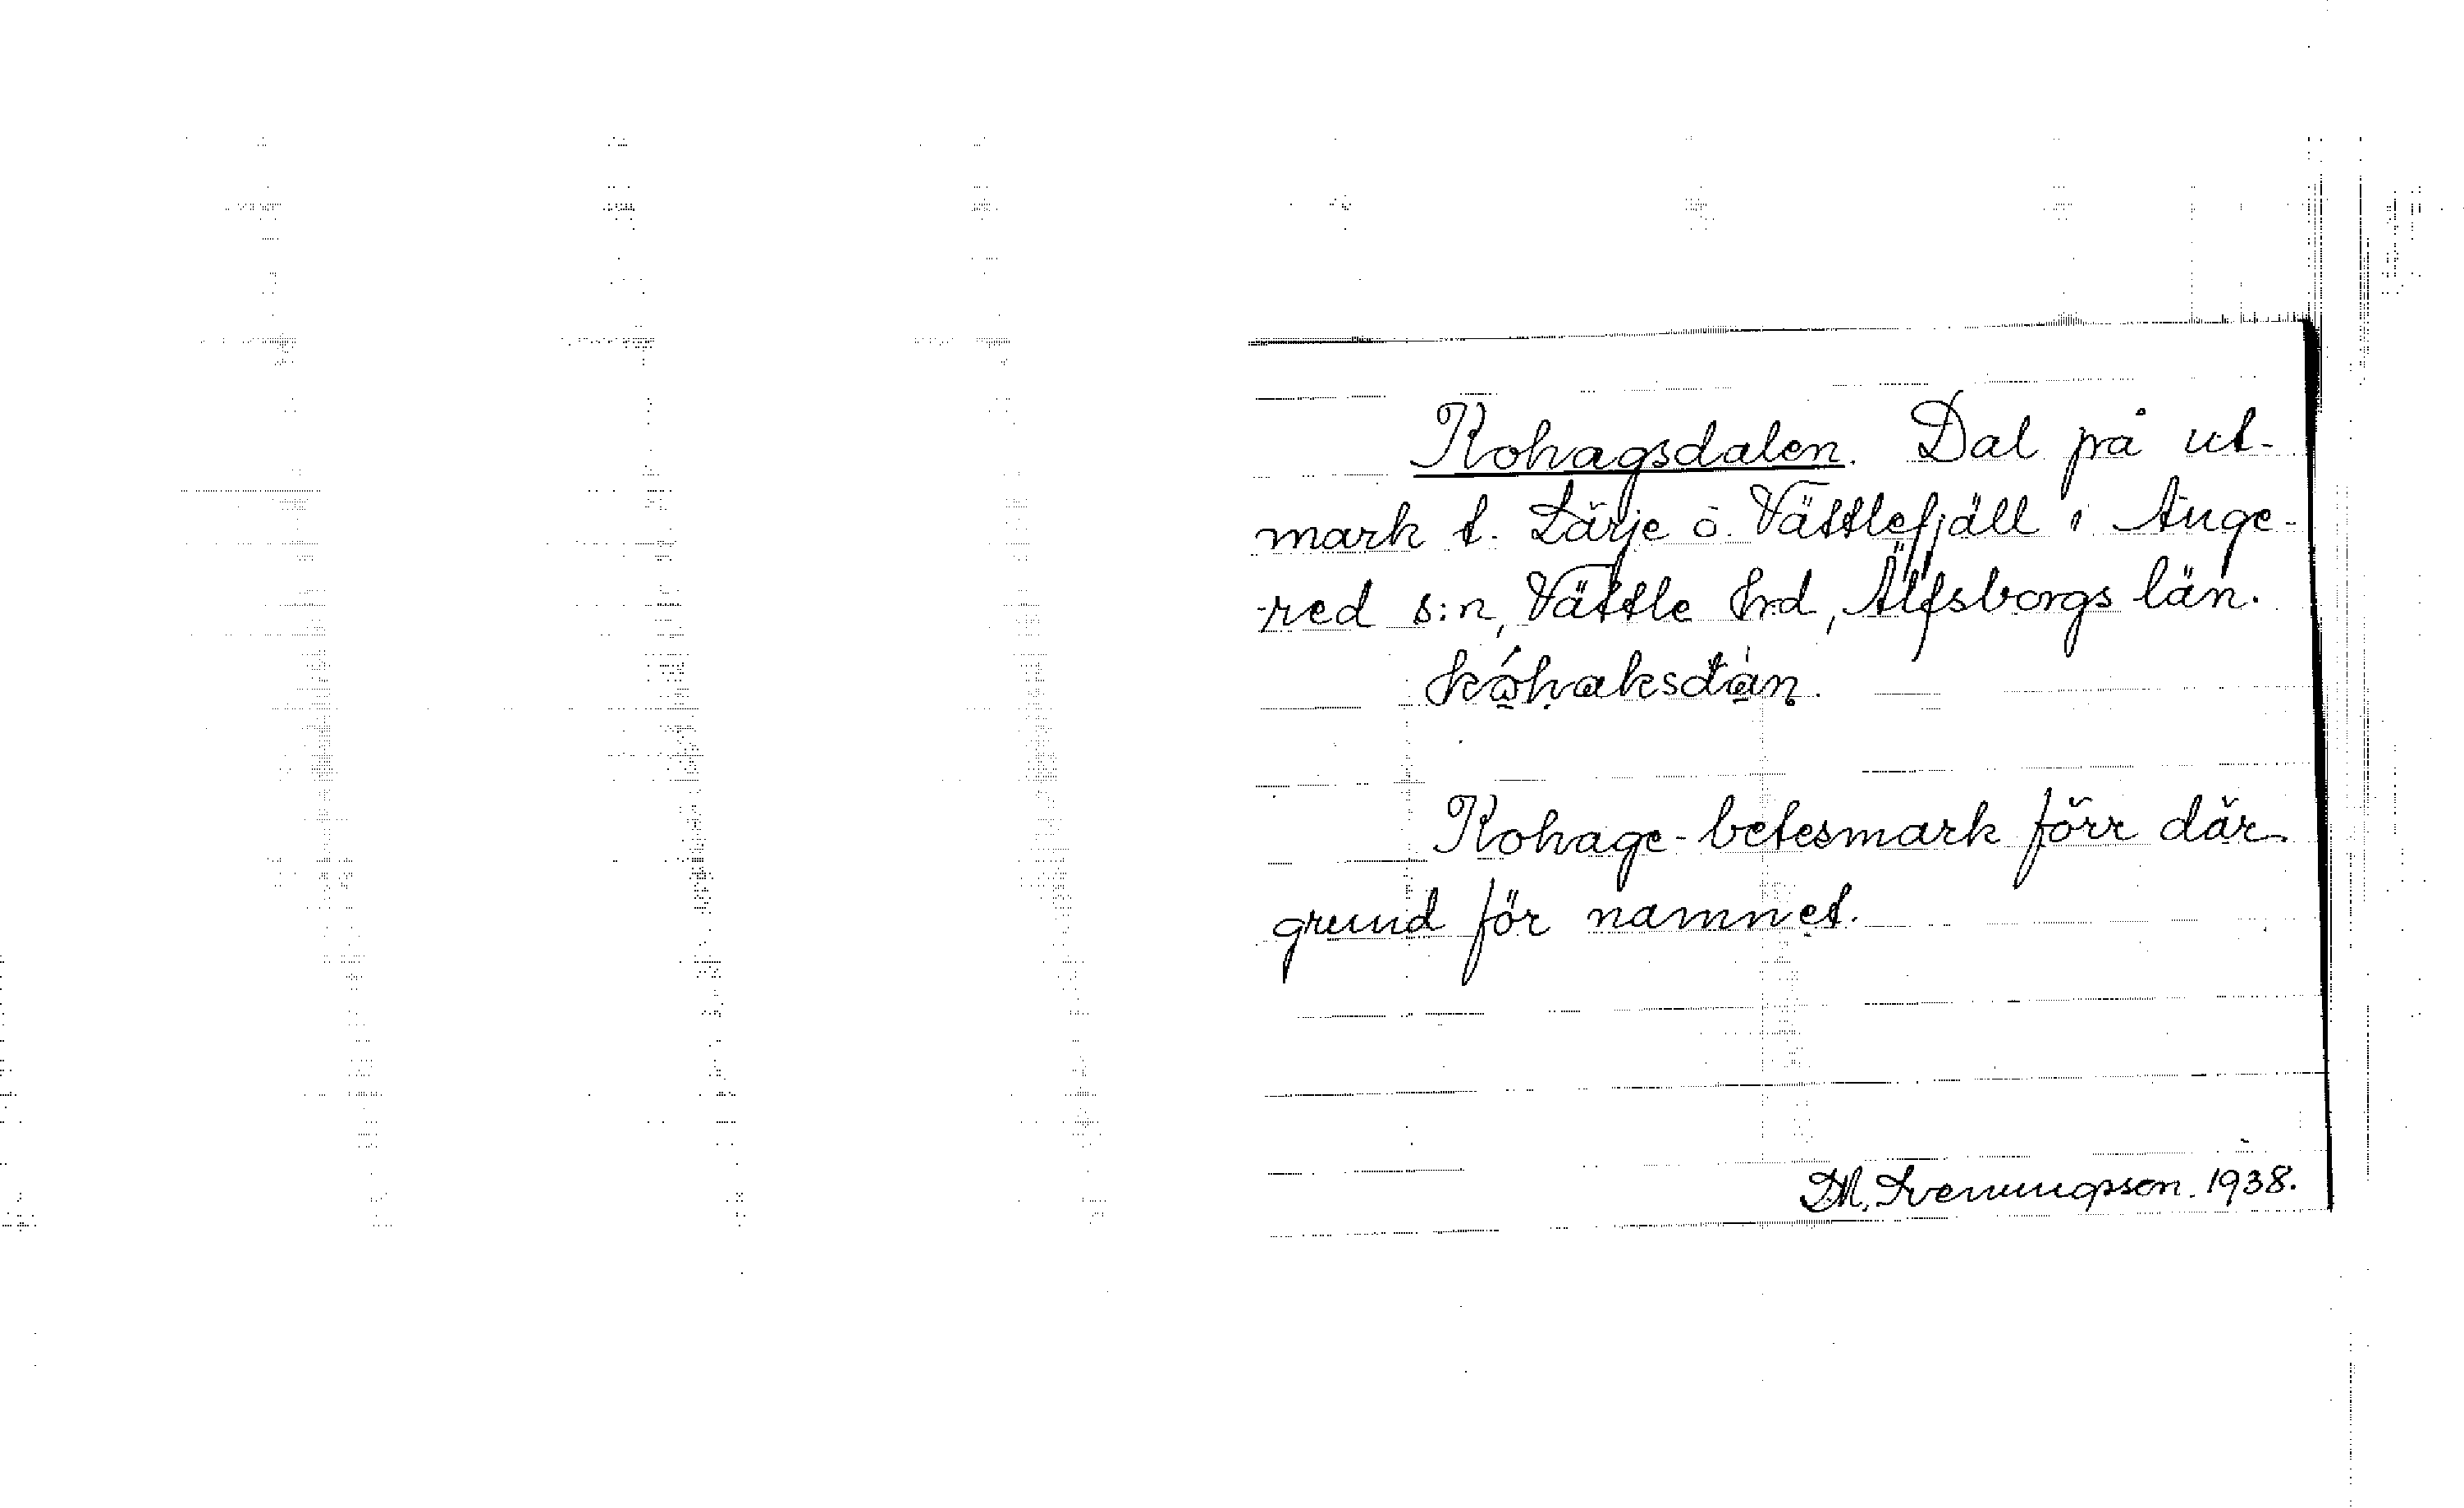 Kohagsdalen. Dal på ut-
mark t. Lärje ö. Vättlefjäll i Ange-
red s:n, Vättle hd, Älfsborgs län.
Kohage-betesmark förr där
grund för namnet.
1938.